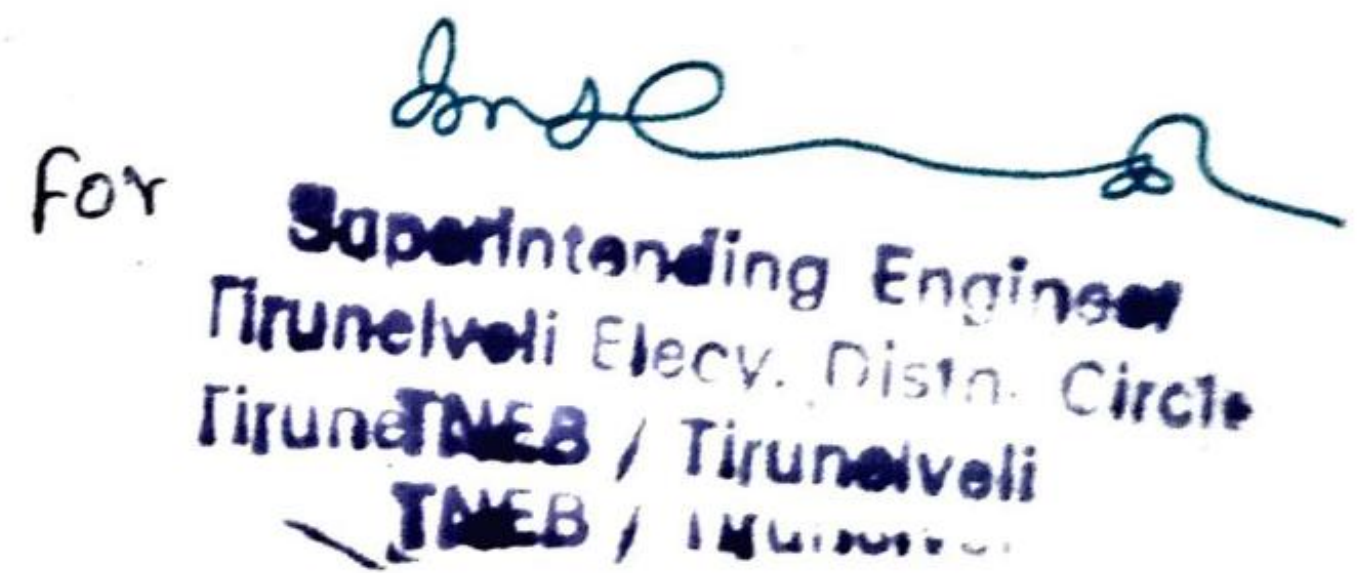 For
Superintending Engineer
Tirunelveli Elecy. Distn. Circle
TNEB / Tirunelveli
TNEB /